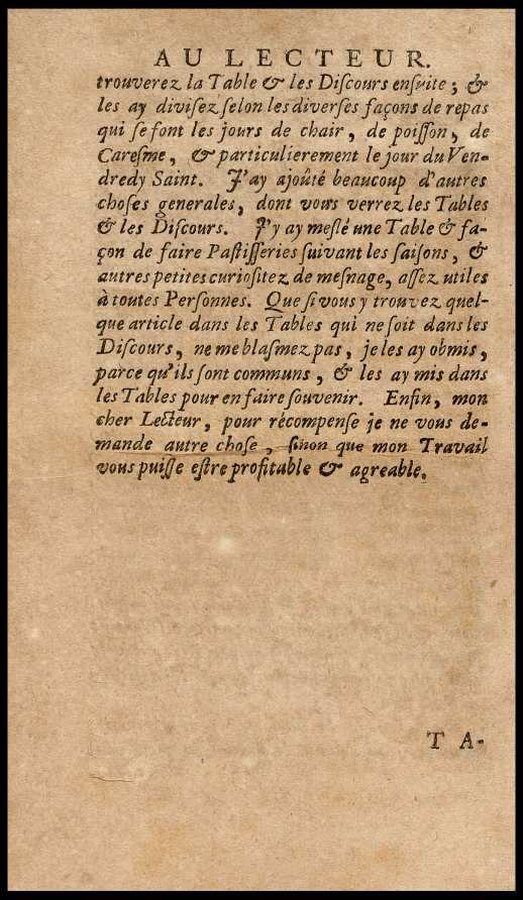 AU LECTEUR.
trouverez la Table & les Diſcours enſuite ; &
les ay diviſez ſelon les diverſes façons de repas
qui ſe font les jours de chair, de poiſſon, de
Careſme, & particulierement le jour du Ven-
dredy Saint. J'ay ajoûté beaucoup d'autres
choſes generales, dont vous verrez les Tables
& les Diſcours. J'y ay meſlé une Table & fa-
çon de faire Paſtiſſeries ſuivant les ſaiſons, &
autres petites curioſitez de meſnage, aſſez utiles
à toutes Perſonnes. Que ſi vous y trouvez quel-
que article dans les Tables qui ne ſoit dans les
Diſcours, ne me blaſmez pas, je les ay obmis,
parce qu'ils ſont communs, & les ay mis dans
les Tables pour en faire ſouvenir. Enfin, mon
cher Lecteur, pour récompenſe je ne vous de-
mande autre choſe, ſinon que mon Travail
vous puiſſe eſtre profitable & agreable.
TA-